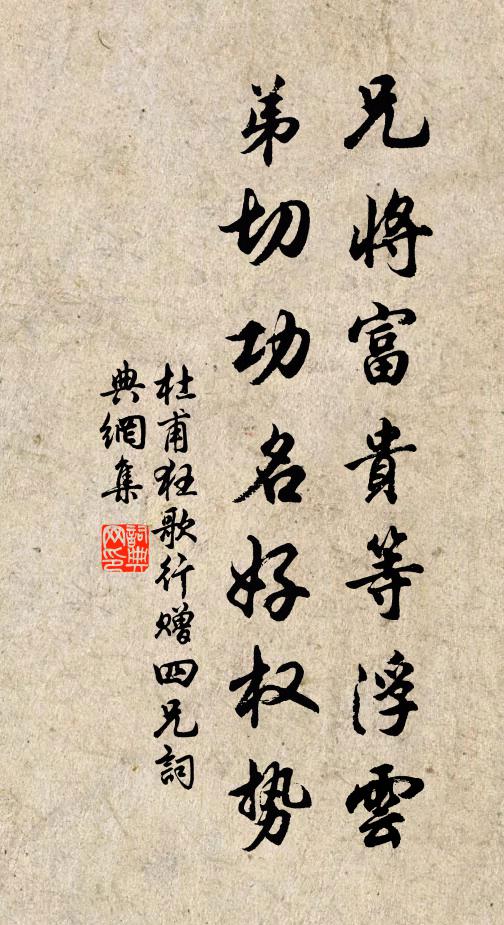 兄将富貴等浮雲
弟切功名好权势
杜甫狂歌行赠四兄詞
典網集
詞典网印